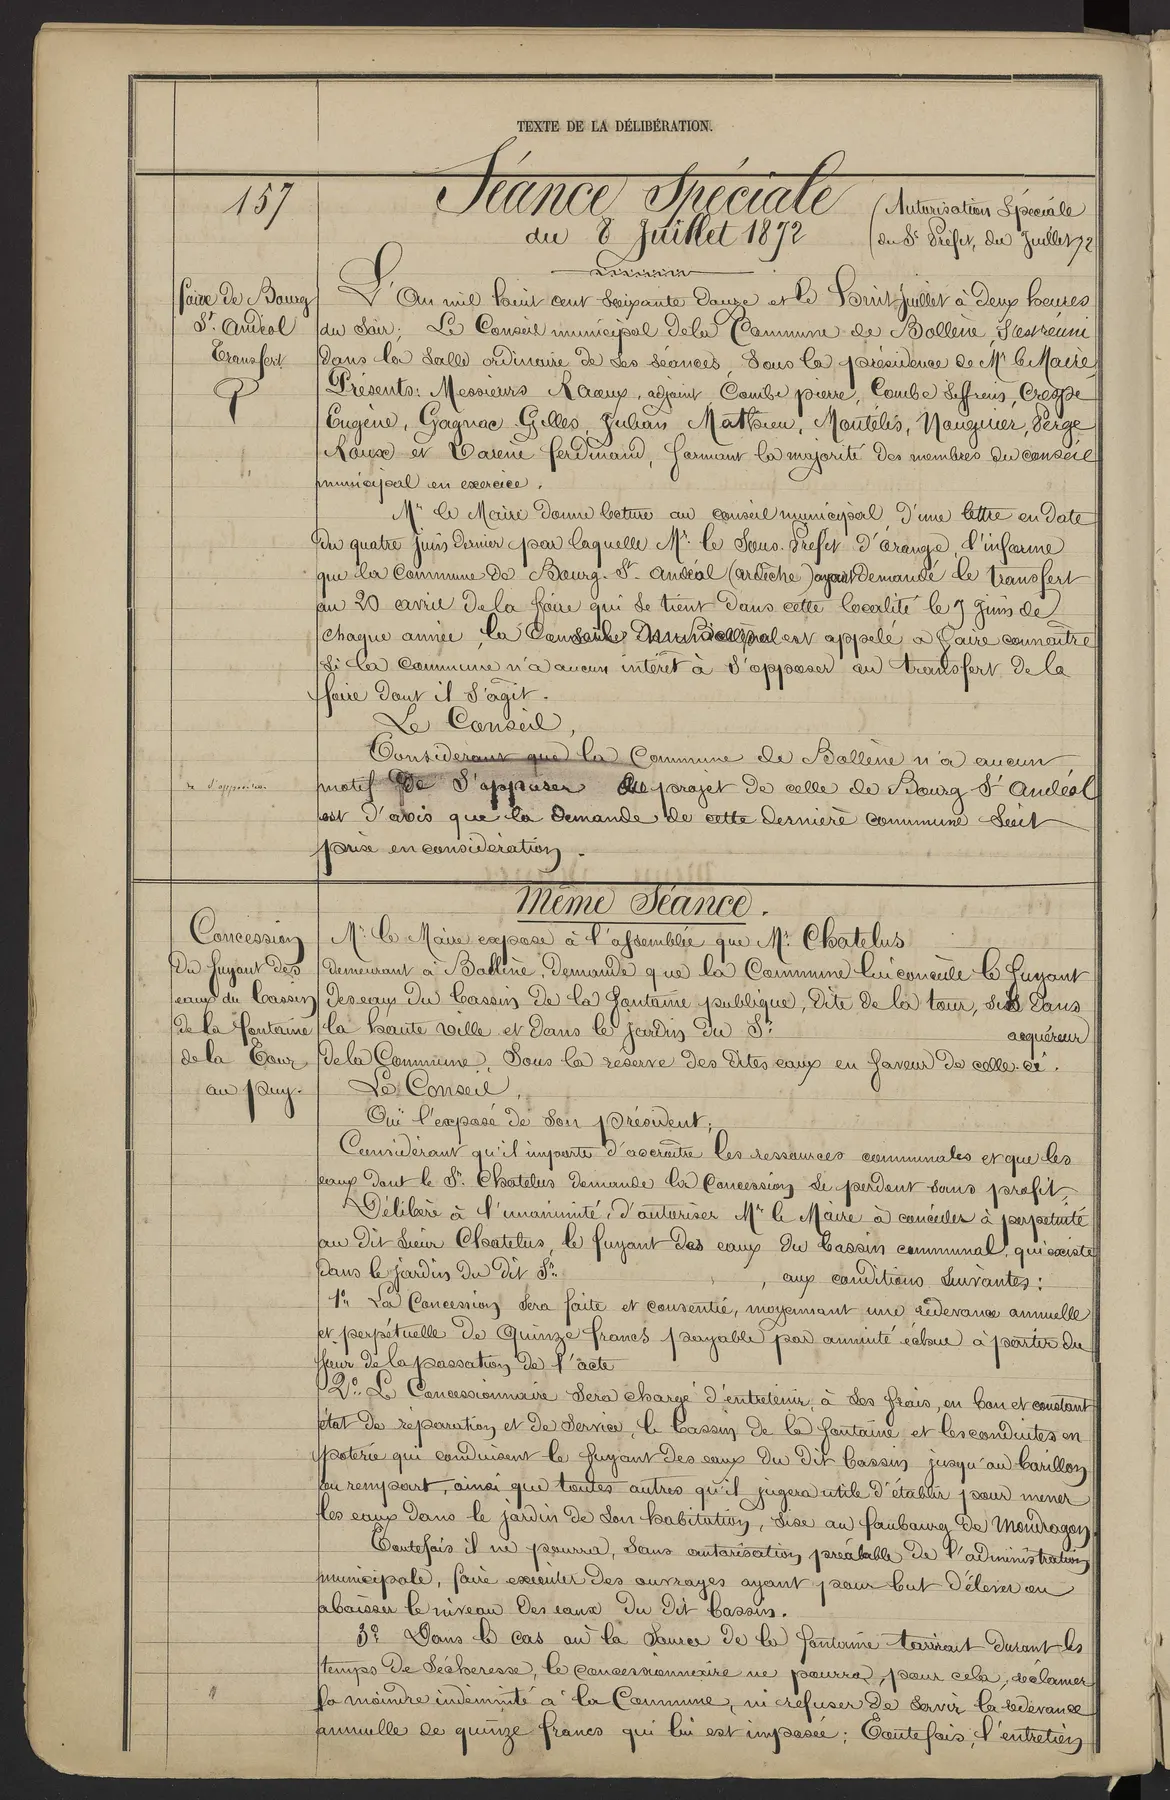 TEXTE DE LA DÉLIBÉRATION.
157
Séance Spéciale
du 8 Juillet 1872
(Autorisation Spéciale
(du Sr Préfet, du Juillet 72
foire de Bourg
St. Andéol
Transfert
L'An mil huit cent soixante douze et le huit juillet à deux heures
du soir; Le Conseil municipal de la Commune de Bollène, s'est réuni
dans la salle ordinaire de ses séances, sous la présidence de Mr le Maire
Présents: Messieurs Raoux, adjoint, Combe pierre, Combe Seffrein, Crespe
Eugène, Gagnac Gilles, Julian Mathieu, Montélis, Nouguier, Serge
Roux et Varène ferdinand, formant la majorité des membres du conseil
municipal en exercice.
Mr le Maire donne lecture au conseil municipal d'une lettre en date
du quatre juin dernier par laquelle Mr. le Sous-Préfet d'Orange l'informe
que la Commune de Bourg-St-Andéol (ardèche) ayant demandé le transfert
au 20 avril de la foire qui se tient dans cette localité le 7 Juin de
chaque année, le Conseil Municipal est appelé à faire connaitre
si la commune n'a aucun intérêt à s'opposer au transfert de la
foire dont il s'agit.
Le Conseil,
Considérant que la Commune de Bollène n'a aucun
motif de s'opposer au projet de celle de Bourg St Andéol
est d'avis que la demande de cette dernière commune soit
prise en considération.
Même Séance.
Concession
du fuyant des
eaux du bassin
de la fontaine
de la Tour
au puy.
Mr. le Maire expose à l'assemblée que Mr. Chatelus
demeurant à Bollène, demande que la Commune lui concède le fuyant
des eaux du bassin de la fontaine publique, dite de la tour, sis dans
la haute ville et dans le jardin du Sr. acquéreur
de la Commune, sous la réserve des dites eaux en faveur de celle-ci.
Le Conseil,
Ouï l'exposé de son président;
Considérant qu'il importe d'accroître les ressources communales et que les
eaux dont le Sr. Chatelus demande la Concession se perdent sans profit,
Délibère à l'unanimité, d'autoriser Mr le Maire à concéder à perpétuité
au dit Sieur Chatelus, le fuyant des eaux du bassin communal, qui existe
dans le jardin du dit Sr. , aux conditions suivantes:
1o La Concession sera faite et consentie, moyennant une redevance annuelle
et perpétuelle de Quinze francs payable par annuité échue à partir du
jour de la passation de l'acte
2o. Le Concessionnaire sera chargé d'entretenir, à ses frais, en bon et constant
état de réparation et de service, le bassin de la fontaine et les conduites en
poterie qui conduisent le fuyant des eaux du dit bassin jusqu'au barillon
du rempart, ainsi que toutes autres qu'il jugera utile d'établir pour mener
les eaux dans le jardin de son habitation, sise au faubourg de Mondragon.
Toutefois il ne pourra, sans autorisation préalable de l'administration
municipale, faire exécuter des ouvrages ayant pour but d'élever ou
abaisser le niveau des eaux du dit bassin.
3o. Dans le cas où la source de la fontaine tarirait durant les
temps de sécheresse, le concessionnaire ne pourra, pour cela, réclamer
la moindre indemnité à la Commune, ni refuser de servir la redevance
annuelle de quinze francs qui lui est imposée; Toutefois, l'entretien